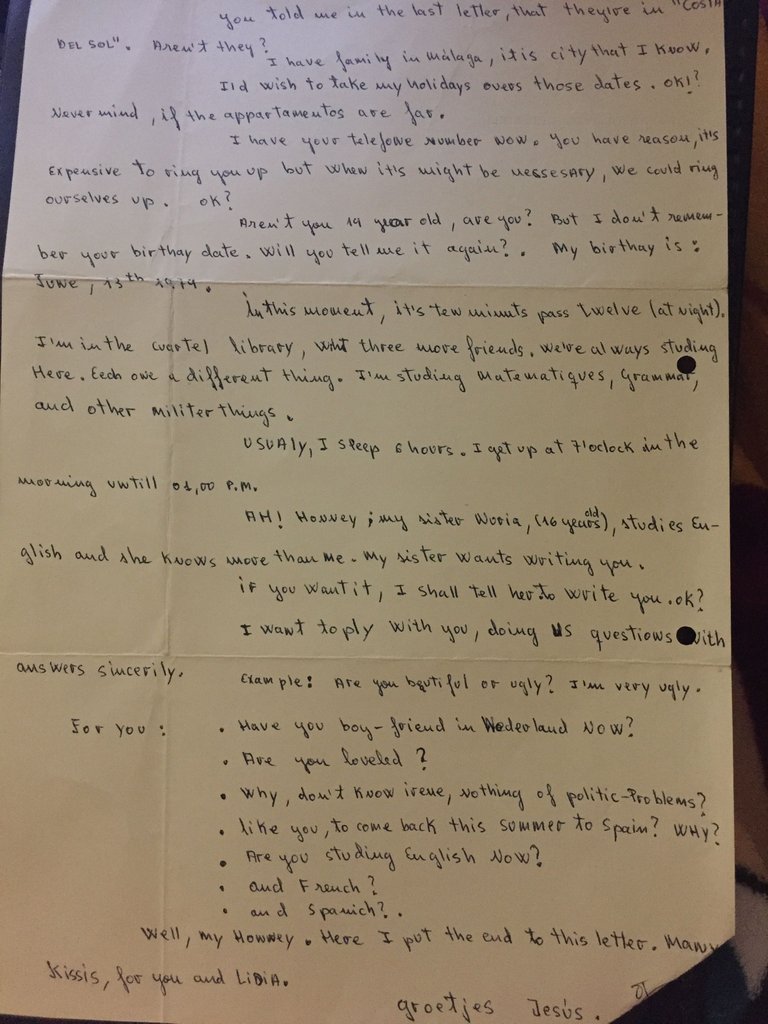 you told me in the last letter, that they're in "COSTA
DEL SOL". Aren't they?
I have family in Málaga, it is city that I know.
I'd wish to take my holidays overs those dates. OK!?
Never mind, if the appartamentos are far.
I have your telefone number now. You have reason, it's
expensive to ring you up but when it's might be nessesary, we could ring
ourselves up. OK?
Aren't you 19 year old, are you? But I don't remem-
ber your birthay date. Will you tell me it again?. My birthay is:
June, 13th 1974.
In this moment, it's ten minuts pass twelve (at night).
I'm in the cuartel library, with three more friends. We're always studing
Here. Eech one a different thing. I'm studing matematiques, grammar,
and other militer things.
USUAly, I sleep 6 hours. I get up at 7'oclock in the
morning untill 01,00 P.M.
AH! Honney; my sister Nuria, (16 years old), studies En-
glish and she knows more than me. My sister wants writing you.
if you want it, I shall tell her to write you. ok?
I want to ply with you, doing US questions with
answers sincerily.
Example: Are you beutiful or ugly? I'm very ugly.
For you:
• Have you boy-friend in Nederland Now?
• Are you loveled?
• Why, don't know irene, nothing of politic-Problems?
• like you, to come back this summer to Spain? WHY?
• Are you studing English Now?
• and French?
• and Spanich?.
Well, my Honney. Here I put the end to this letter. Many
Kissis, for you and LiDiA.
groetjes Jesús.